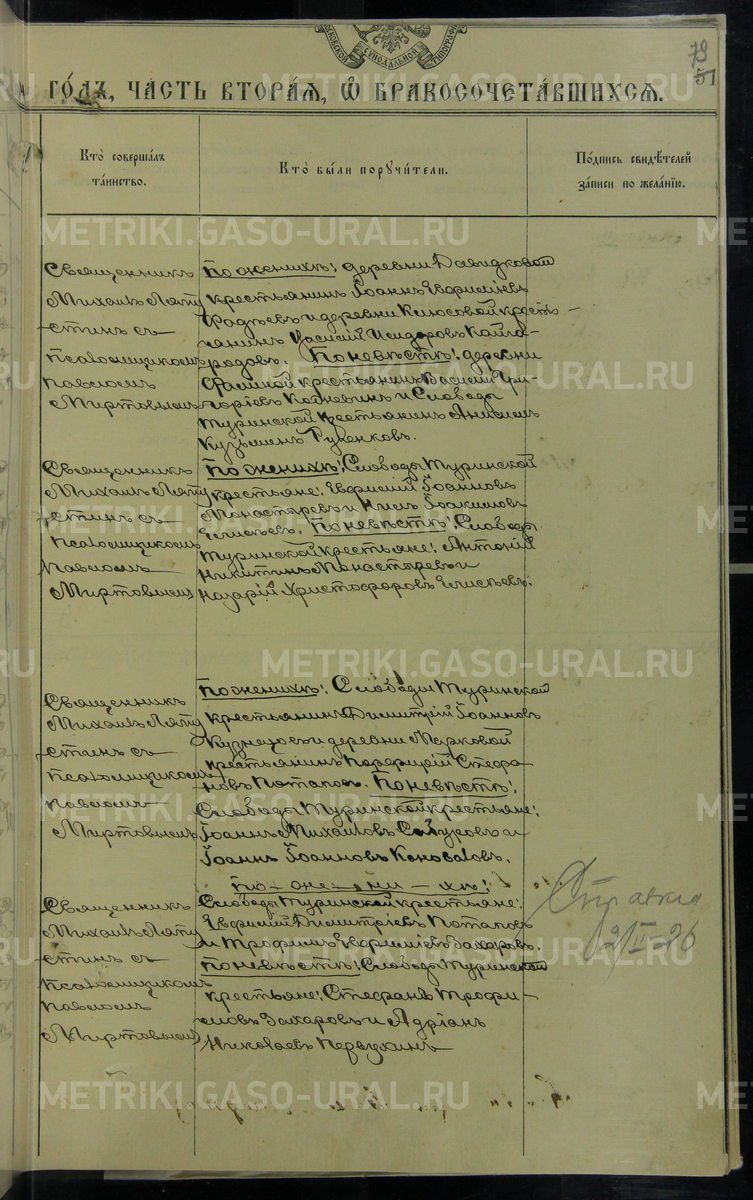 МОСКОВСКОЙ СѴНОДАЛЬНОЙ ТИПОГРАФІИ
78
51
го́дъ, часть втора́я, ѽ бракосочета́вшихсѧ.
Кто̀ соверша́лъ
та́инство.
Кто̀ бы́ли порꙋчи́тели.
По́дпись свидѣ́телей
за́писи по жела́нїю.
Священникъ
Михаилъ Ляпу
стинъ съ
псаломщикомъ
Павломъ
Миртовымъ
По женихѣ: деревни Давыдковой
крестьянинъ Іоаннъ Евфиміевъ
и деревни крестъ-
янинъ Василій Исидоровъ Кайго-
родовъ. По невѣстѣ: деревни
крестьянинъ Василій Гри-
горіевъ и Слободы
Туринской крестьянинъ Анисимъ
Кузьминъ
Священникъ
Михаилъ Ляпу
стинъ съ
псаломщикомъ
Павломъ
Миртовымъ
По женихѣ: Слободы Туринской
крестьяне: Евфимій Іоанновъ
Манастыревъ и Іоакимовъ
Елисѣевъ. По невѣстѣ: Слободы
Туринской крестьяне: Антоній
Никитинъ Манастыревъ и
Назарій Христофоровъ Елисѣевъ.
Священникъ
Михаилъ Ляпу
стинъ съ
псаломщикомъ
Павломъ
Миртовымъ
По женихѣ: Слободы Туринской
крестьянинъ Димитрій Іоанновъ
Кузнецовъ и деревни Марковой
крестьянинъ Порфирій Стефа-
новъ Потаповъ. По невѣстѣ:
Слободы Туринской крестьяне:
Іоаннъ Михаиловъ и
Іоаннъ Іоанновъ Коноваловъ.
По жени-хѣ:
Священникъ
Михаилъ Ляпу
стинъ съ
псаломщикомъ
Павломъ
Миртовымъ
Слободы Туринской крестьяне:
Евфимій Димитріевъ Потаповъ
и Трофимъ Евфиміевъ Захаровъ.
По невѣстѣ: Слободы Туринской
крестьяне: Стефанъ Трофи-
мовъ Захаровъ и Адріанъ
Николаевъ Первухинъ
Справка
METRIKI.GASO-URAL.RU